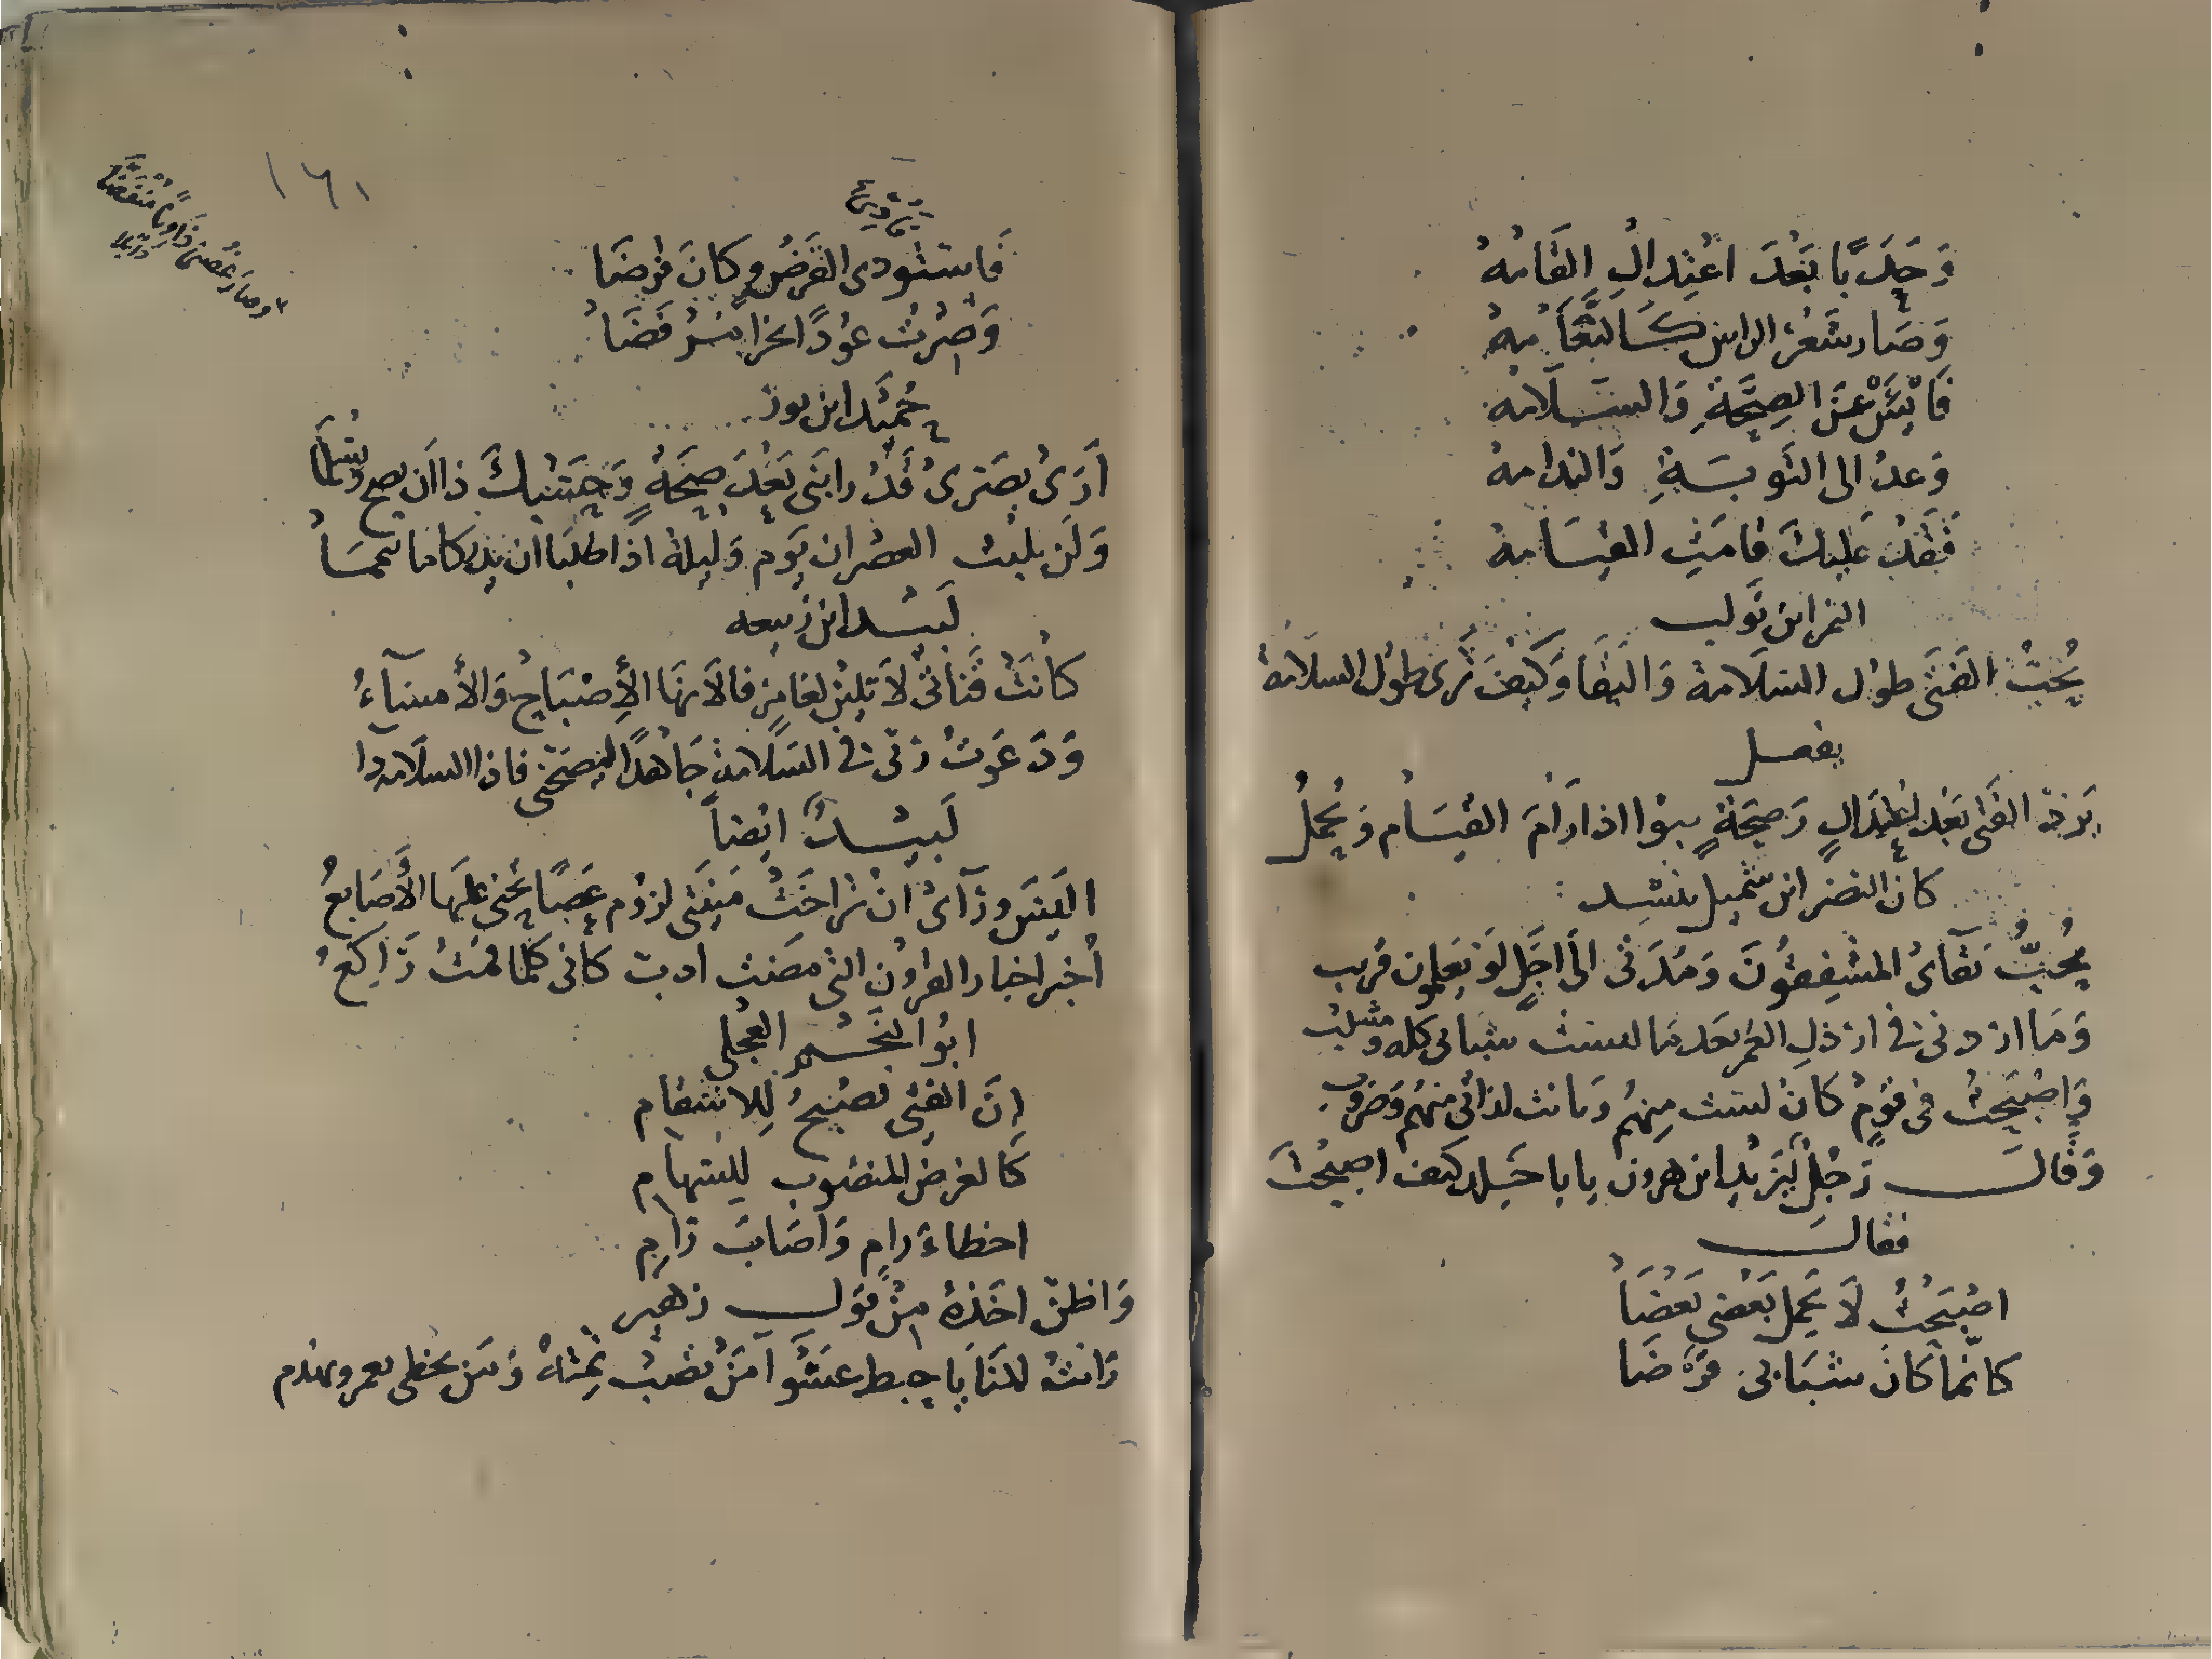 وَحَدَبًا بَعْدَ اعْتِدالِ القَامَهْ
وَصَار شَعْرُ الراس كَالثَّغَامه
فَايْئَسْ عَنِ الصِحَّةِ وَالسَّلَامه
وَعدْ الى التَوبَةِ وَالندامهْ
فَقَدْ عَليكَ قامَتِ القِيَامهْ
النمر ابن تَولب
يُحبْ الفَتَى طوْل السَلَامة وَالبَقَا وَكَيْفَ تَرى طوْل السلامة
يفعل
يَردّ الفَتَى بَعْدَ اعْتِدَالٍ وَصِحَّةٍ ينوْا اذا رَامَ القِيَام وَيُحْمَلُ
كان النضر ابن شميل ينشد
يُحُبُّ بَقَآىْ المشْفِقُوْنَ وَمُدَتى الَى اجَلٍ لَوْ يَعلمون قريب
وَمَا اربى فى ارذلِ العمر بَعد مَا لبست شبابى كله ومشيب
وَاصْبَحْتْ فى قَوْمٍ كَانْ لستُ مِنهُم وَبانت لداتى منهم وَضروب
وَقَالَ رَجلٌ ليَزيد ابن هرون يا با خَلد كيف اصبحْتَ
فقالَ
اصْبَحْتْ لَا يَحمل بَعْضى بَعْضَا
كانّما كَانْ شَبَابى قرْضَا
١٦١
فَاستودى القَرْضُ وكانَ فرضَا
وَصِرْتْ عوْدًا نخرا مْرفضَا
او صَارَ غُصْنى ذَاويًا مْنفضَّا
حُمَيْد ابن ثور
اَرَىْ بصَرىْ قَدْ رابَنى بَعْدَ صِحَةٍ وَحَسْبكَ ذا ان يصح وَتسْلَمَا
وَلَن يلبث العصْران يَوم وَليلةٍ اذا طلبَا ان يدركا ما تيممَا
لَبيد ابن ربيعه
كانَتْ قَناتى لَا تلينْ لغامزٍ فالَانهَا الْإِصْبَاحُ وَالْأمسَآءُ
وَدَعَوتْ رَبّى فى السَلَامة جَاهدًا ليصحّنى فاذا السلَامه دا
لَبيدٌ ايْضاً
اليسَ وَرَآىْ انْ تراخَتْ مَنيتى لزوم عَصًا تحْنى علَيها الْأَصَابعُ
اخبر اخبار القروْن التى مضَت ادب كانى كلما قمْتْ رَاكعُ
ابوْا النَجم العجْلى
اِنّ الفتْى يُصْبحُ لِلاسْقام
كَالغرض المنصوب للسّهام
اخطاءَ رام وَاصَابَ رَام
وَاظن اخَذَهُ مِنْ قول زهير
رَايتْ المنَايَا خبط عشْوَآ مَنْ تُصْبْ تمِتهْ وَمَن تخطى يعمر ويهْرم